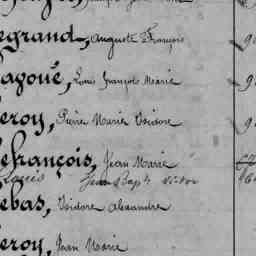 egrand, Auguste François
agoué, Louis François Marie
eroy, Pierre Marie Isidore
efrançois, Jean Marie
Louis Jean Bapt Victor
ebas, Isidore Alexandre
eroy, Jean Marie